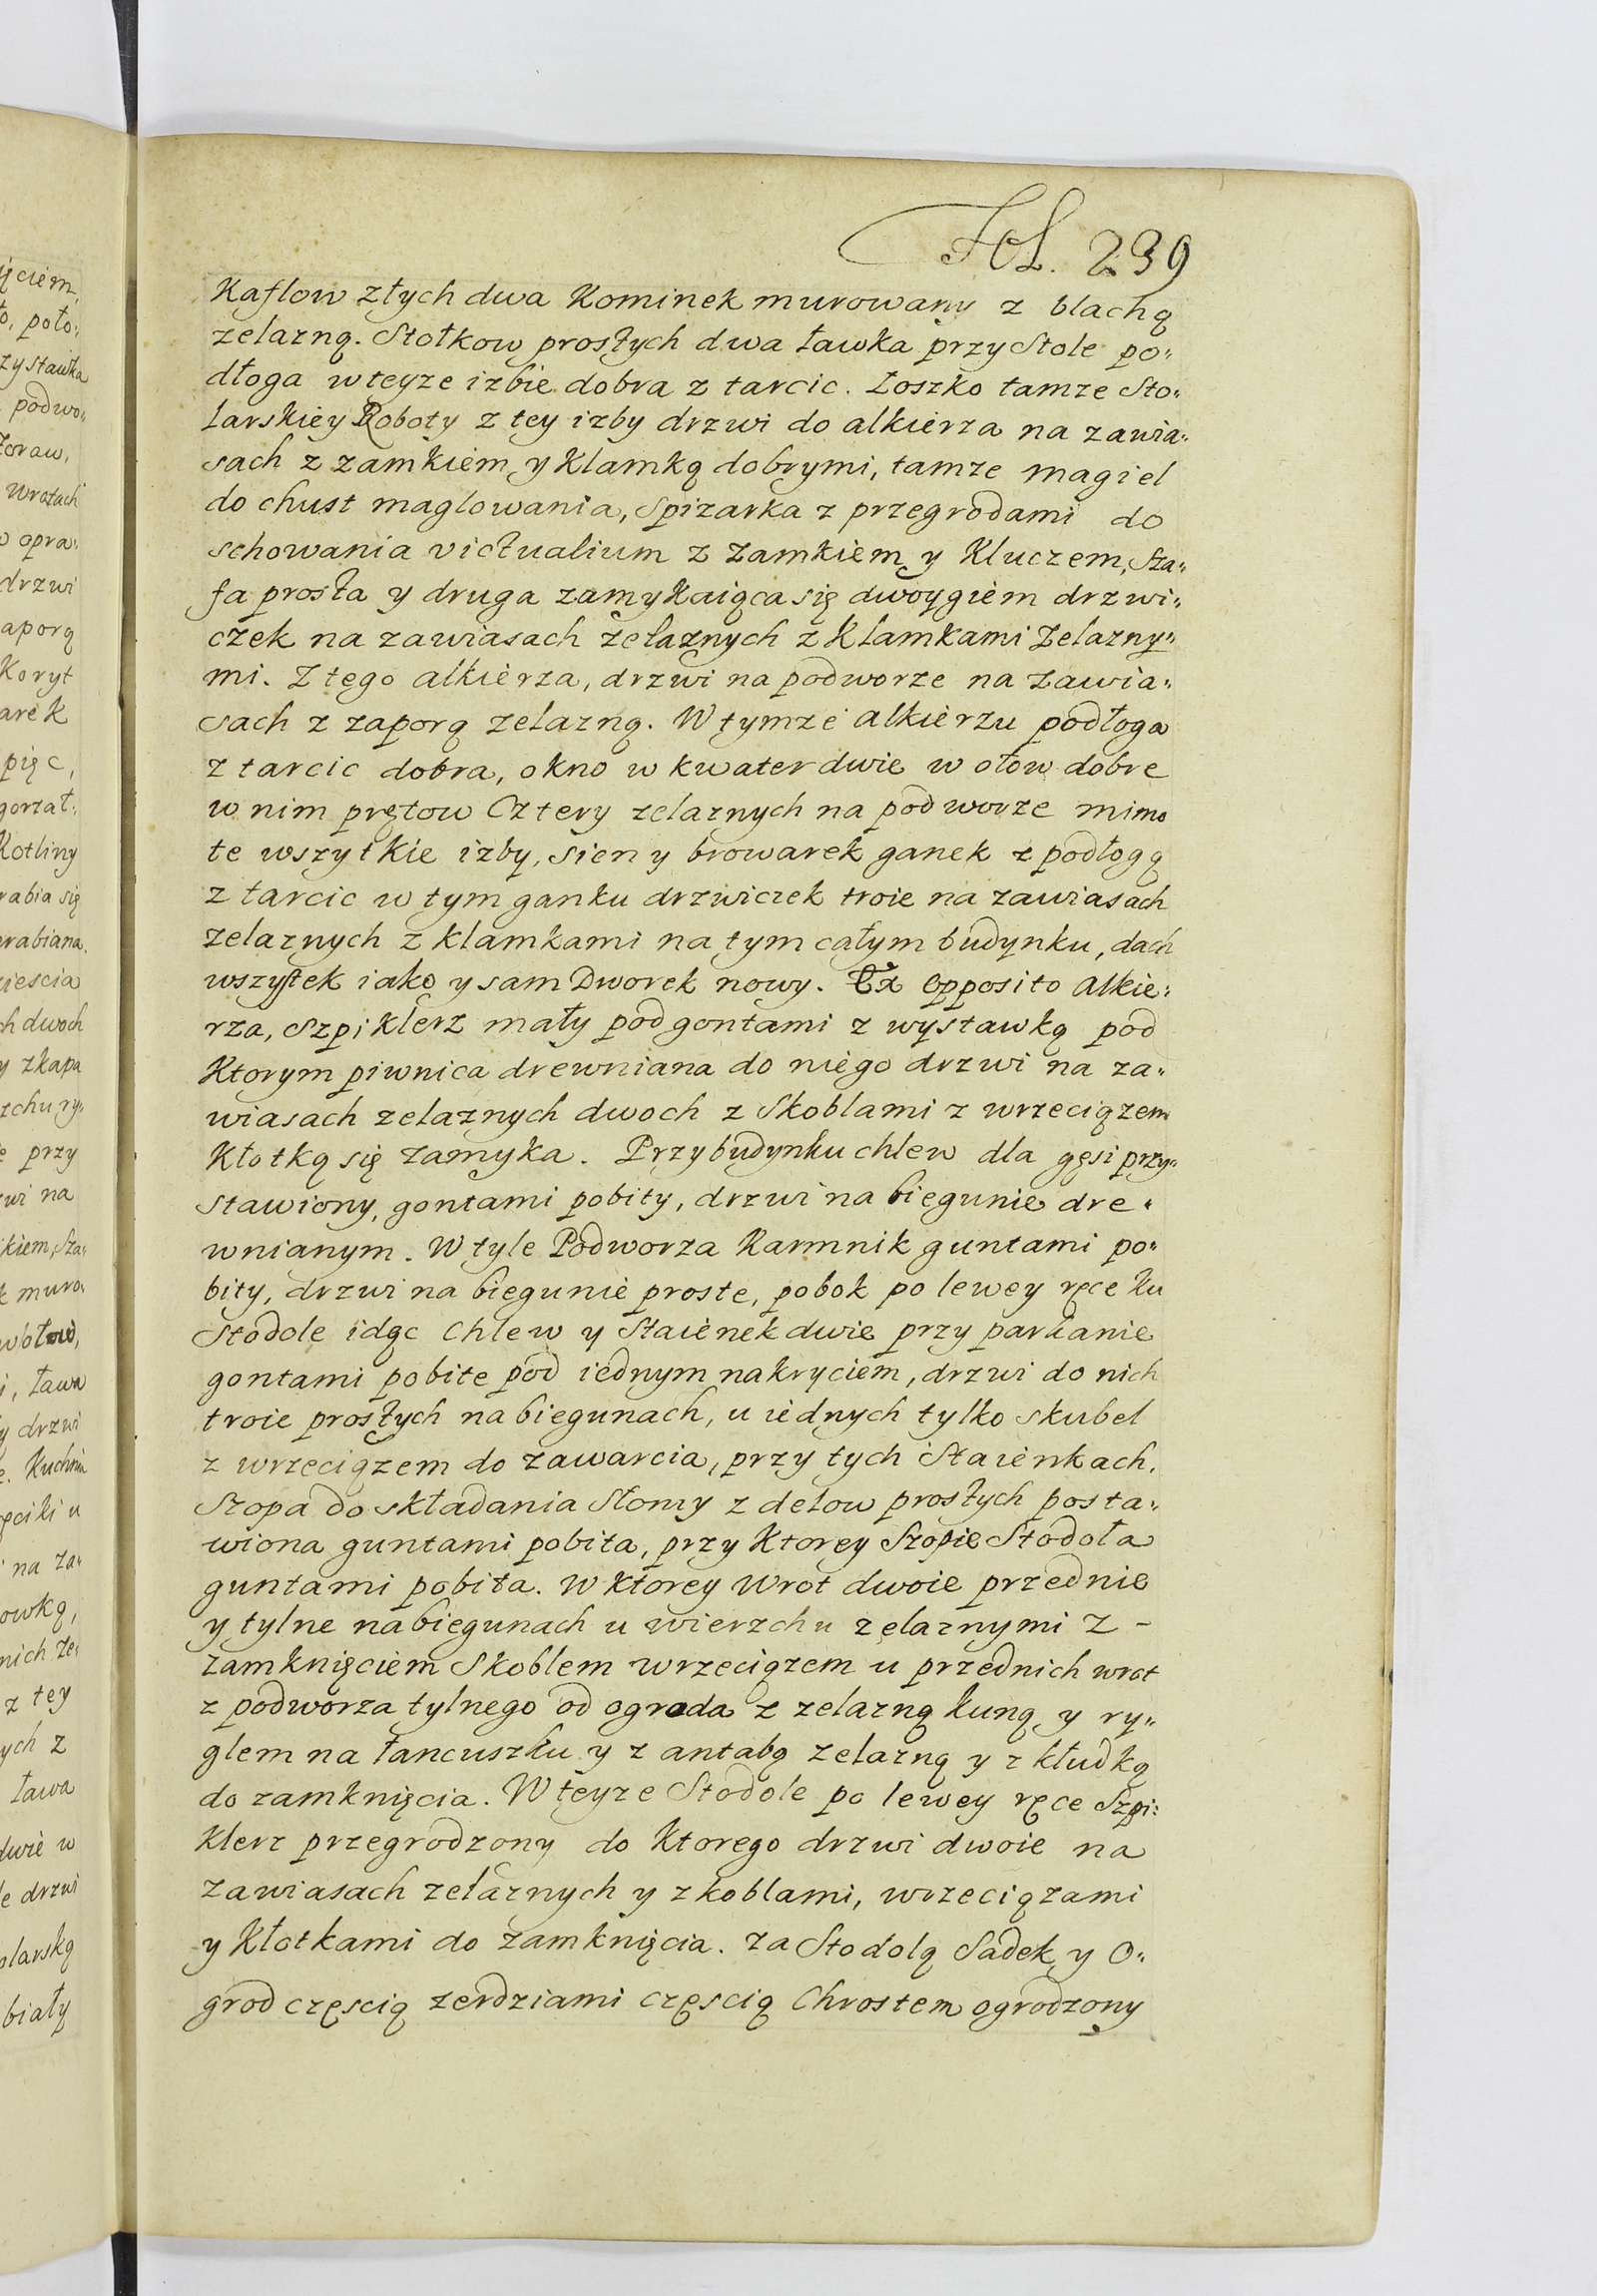 Fol. 239
Kaflow złych dwa Kominek murowany z blachą
zelazną. Stołkow prostych dwa ławka przy Stole po„
dłoga w teyze izbie dobra z tarcic. Łoszko tamze Sto„
larskiey Roboty z tey izby drzwi do alkierza na zawia„
sach z zamkiem y Klamką dobrymi, tamze magiel
do chust maglowania, Spizarka z przegrodami do
schowania victualium z zamkiem y Kluczem, Sza„
fa prosta y druga zamykaiąca się dwoygiem drzwi„
czek na zawiasach zelaznych z Klamkami Zelazny„
mi. Z tego alkierza, drzwi na podworze na zawia„
sach z zaporą zelazną. W tymze alkierzu podłoga
z tarcic dobra, okno w kwater dwie w ołow dobre
w nim prętow Cztery zelaznych na podworze mimo
te wszytkie izby, sien y browarek ganek z podłogą
z tarcic w tym ganku drzwiczek troie na zawiasach
zelaznych z klamkami na tym całym budynku, dach
wszystek iako y sam Dworek nowy. Ex Opposito Alkie„
rza, Szpiklerz mały pod gontami z wystawką pod
Ktorym piwnica drewniana do niego drzwi na za„
wiasach zelaznych dwoch z Skoblami z wrzeciązem
Kłotką się zamyka. Przy budynku chlew dla gęsi przy„
stawiony, gontami pobity, drzwi na biegunie dre„
wnianym. W tyle Podworza Karmnik guntami po„
bity, drzwi na biegunie proste, pobok po lewey ręce ku
Stodole idąc Chlew y Staienek dwie przy parkanie
gontami pobite pod iednym nakryciem, drzwi do nich
troie prostych na biegunach, u iednych tylko skubel
z wrzeciązem do zawarcia, przy tych Staienkach.
Szopa do składania Słomy z delow prostych posta„
wiona guntami pobita, przy Ktorey Szopie Stodoła
guntami pobita. W Ktorey Wrot dwoie przednie
y tylne na biegunach u wierzchu zelaznymi z –
zamknięciem Skoblem wrzeciązem u przednich wrot
z podworza tylnego od ogroda z zelazną kuną y ry„
glem na łancuszku y z antabą zelazną y z kłudką
do zamknięcia. W teyze Stodole po lewey ręce Szpi„
Klerz przegrodzony do Ktorego drzwi dwoie na
zawiasach zelaznych y zkoblami, wrzeciązami
y Kłotkami do zamknięcia. za Stodolą Sadek y O„
grod częscią zerdziami częscią Chrostem ogrodzony